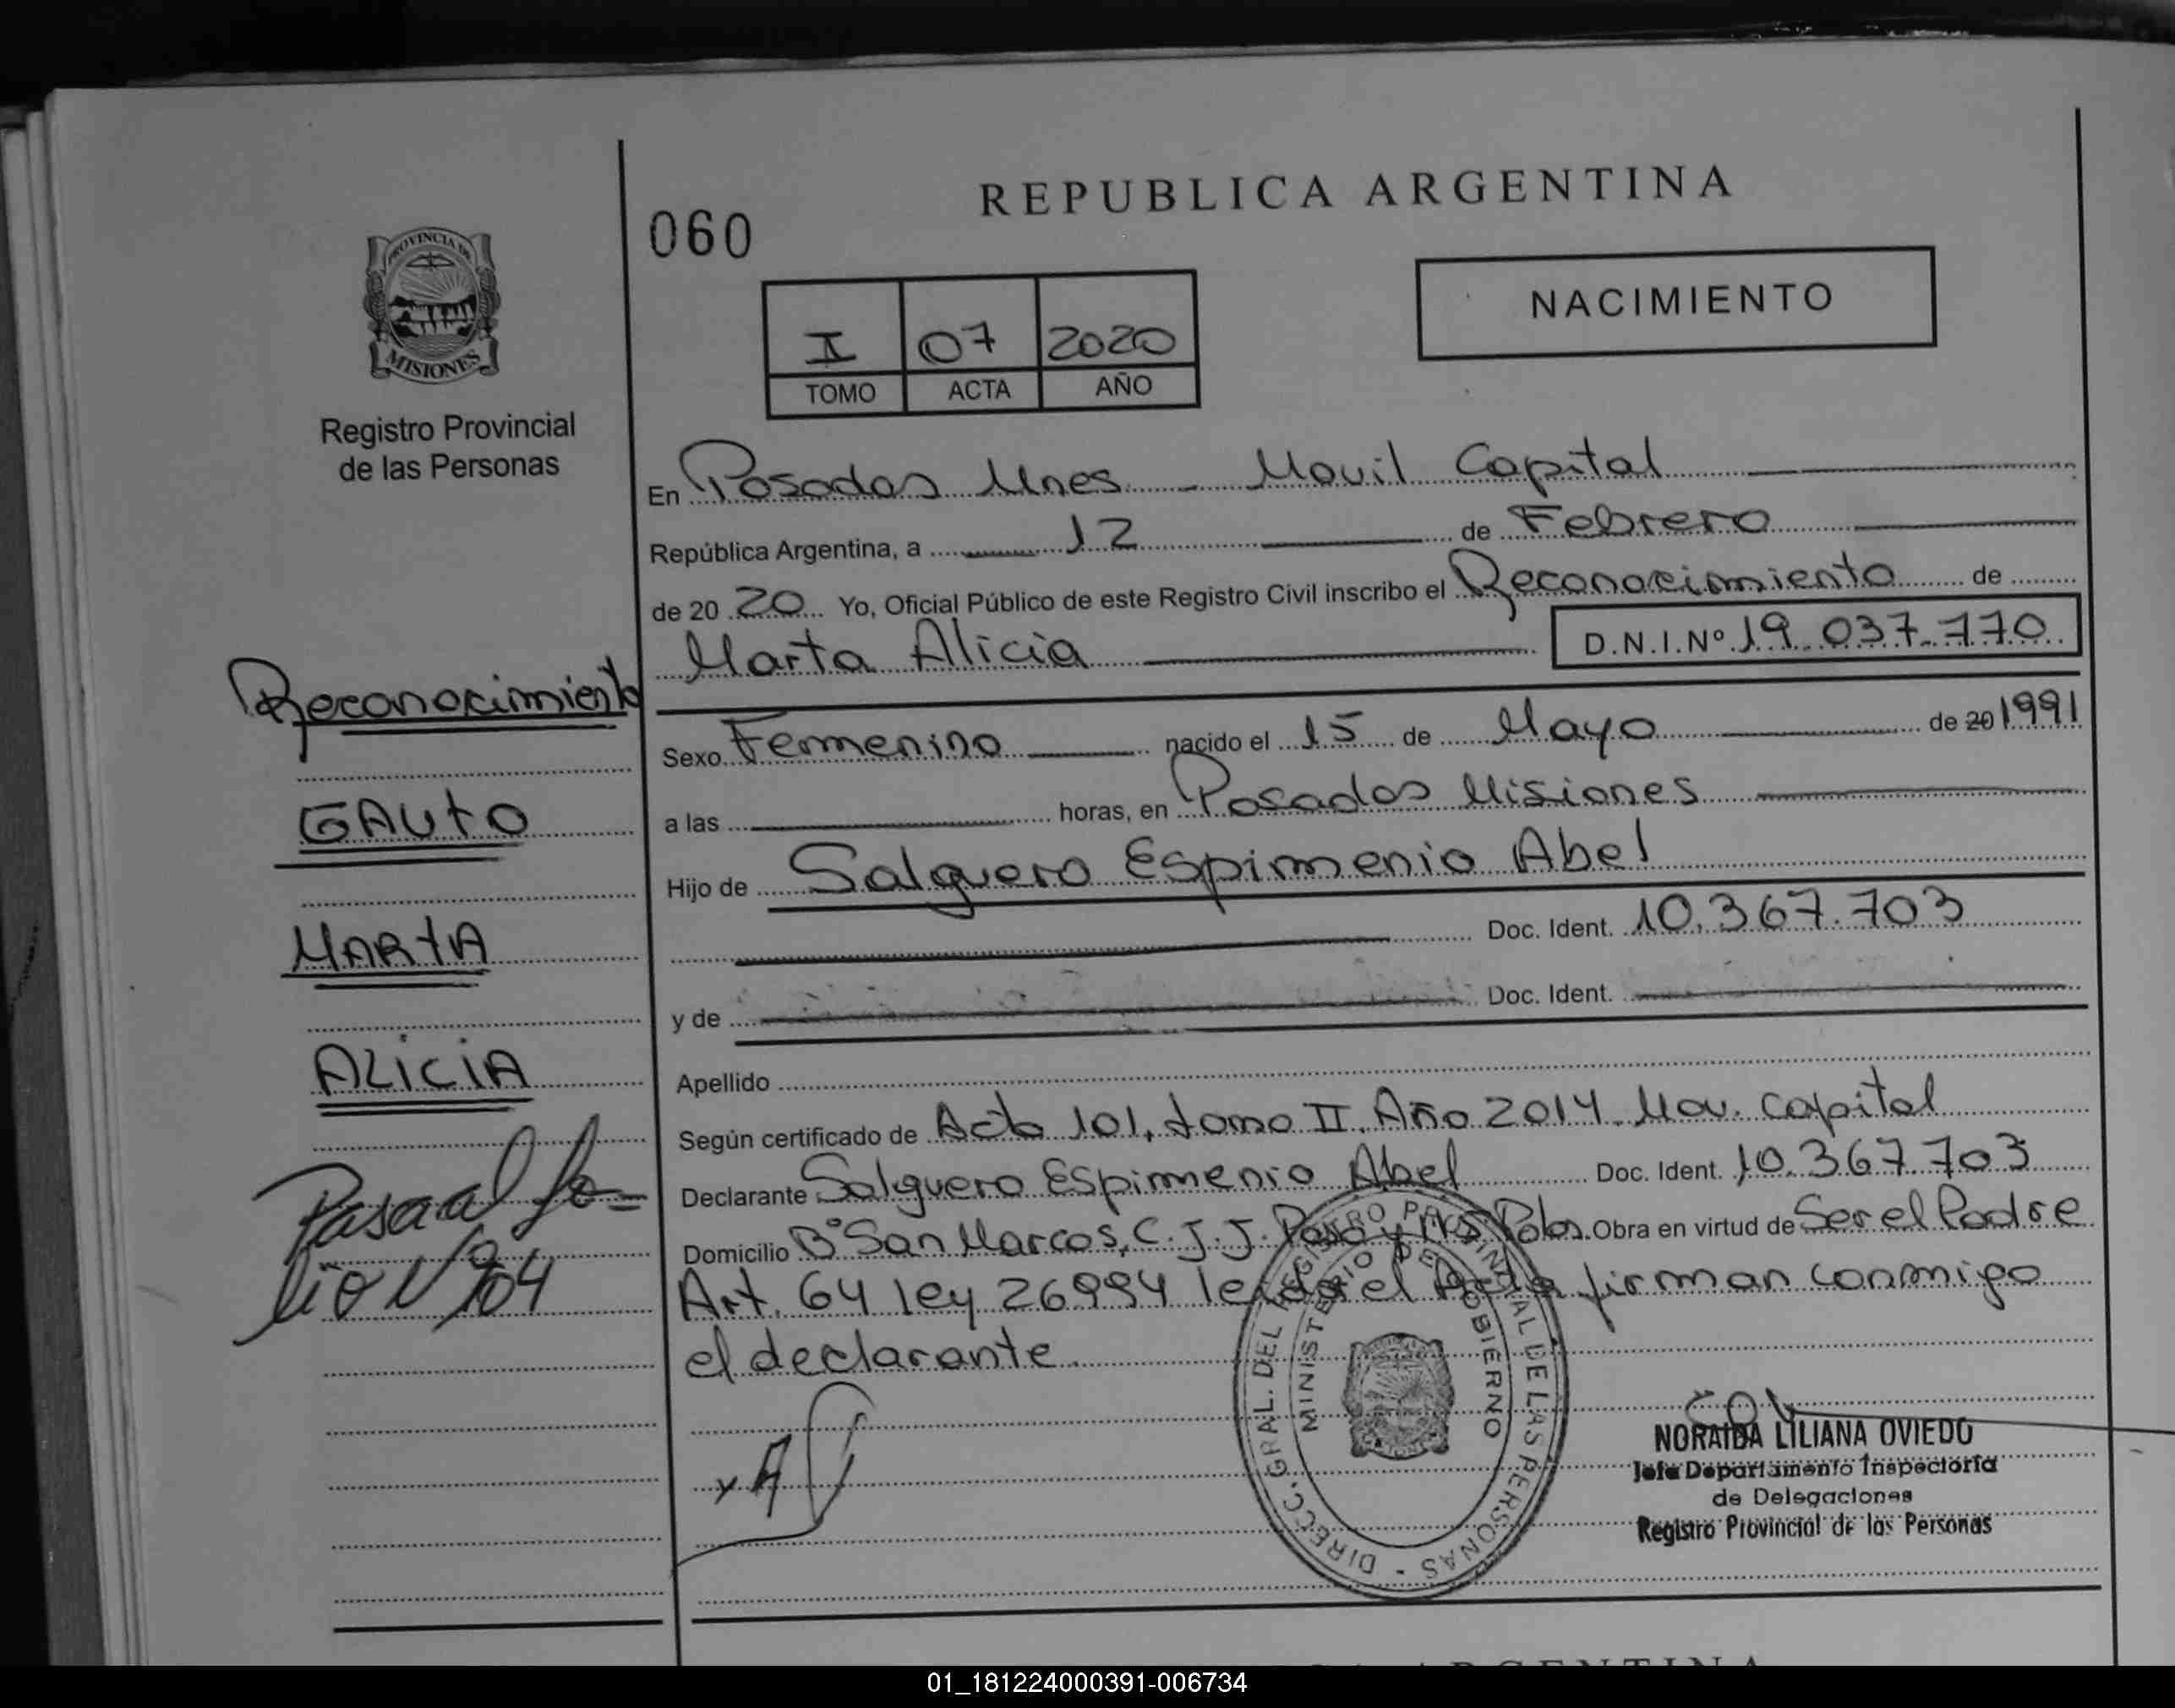 REPUBLICA ARGENTINA
060
PROVINCIA DE
MISIONES
I 07 2020
TOMO ACTA AÑO
NACIMIENTO
Registro Provincial
de las Personas
En Posadas Mnes - Movil Capital
República Argentina, a 12 de Febrero
de 20 20 Yo, Oficial Público de este Registro Civil inscribo el Reconocimiento de
Marta Alicia D.N.I.Nº 19.037.770
Sexo Femenino nacido el 15 de Mayo de 20 1991
a las horas, en Posadas Misiones
Hijo de Salguero Espimenio Abel
Doc. Ident. 10.367.703
y de Doc. Ident.
Apellido
Según certificado de Acta 101, tomo II. Año 2014. Mov. Capital
Declarante Salguero Espimenio Abel Doc. Ident. 10.367.703
Domicilio Bº San Marcos, C. J. J. Paso y Obra en virtud de Ser el Padre
Art. 64 ley 26994 leida el Acta firman conmigo
el declarante.
Reconocimiento
GAUTO
MARTA
ALICIA
Pasa al fo=
lio Nº 704
DIRECC. GRAL. DEL REGISTRO PROVINCIAL DE LAS PERSONAS -
MINISTERIO DE GOBIERNO
NORAIDA LILIANA OVIEDO
Jefa Departamento Inspectoría
de Delegaciones
Registro Provincial de las Personas
01_181224000391-006734